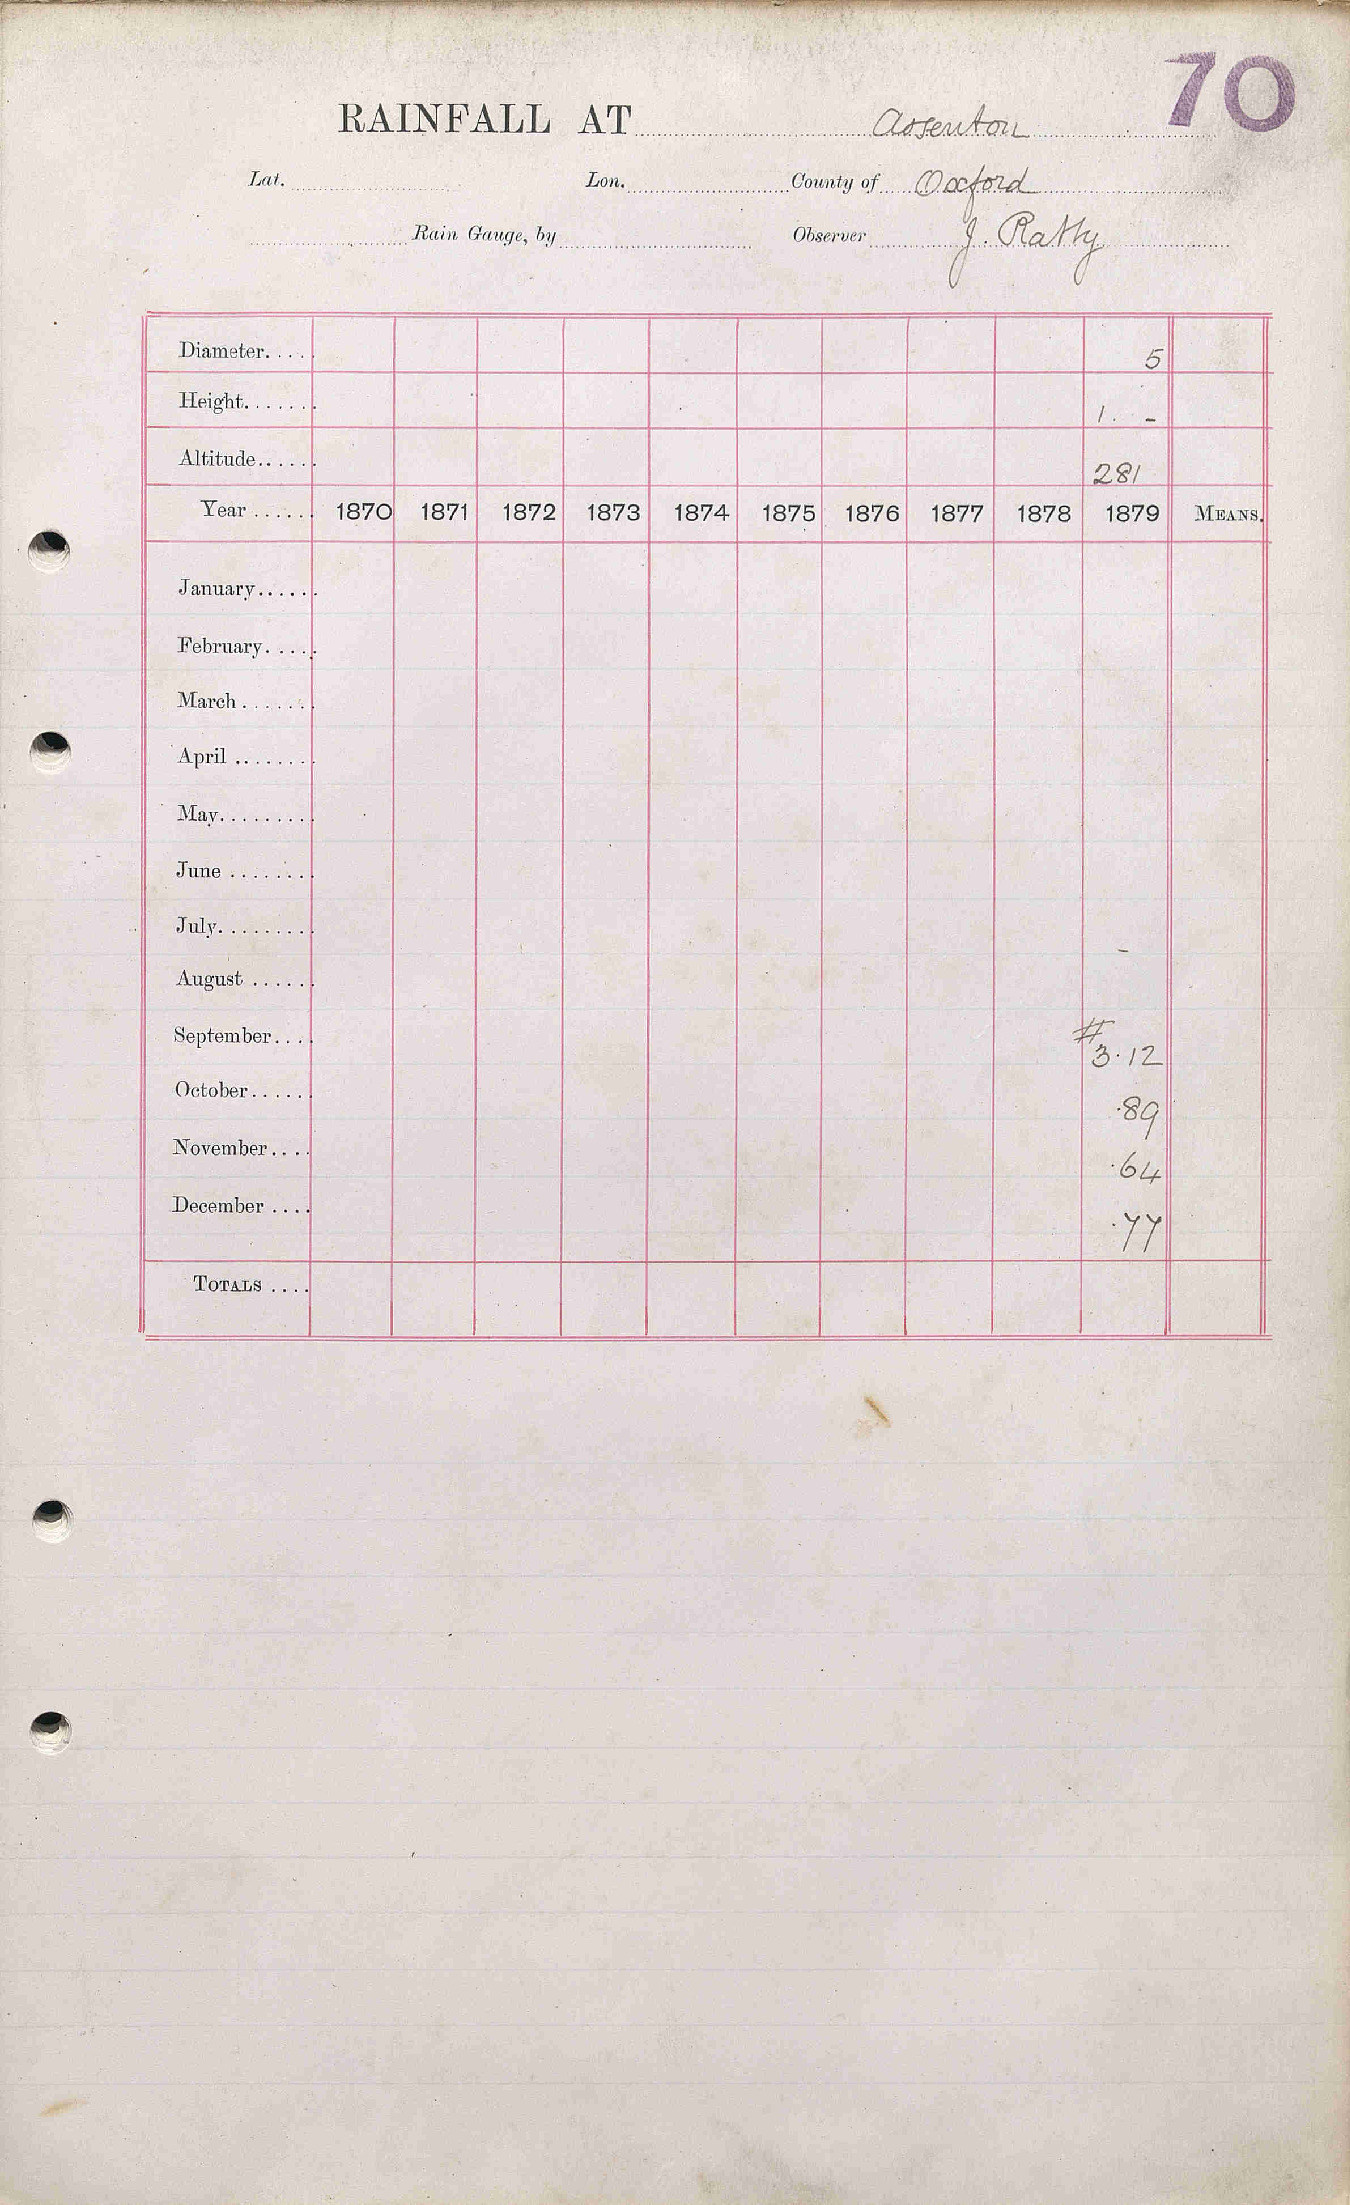 70
RAINFALL AT Assenton
Lat. Lon. County of Oxford
Rain Gauge, by Observer J. Ratty
Diameter..... 5
Height....... 1. -
Altitude...... 281
Year ...... 1870 1871 1872 1873 1874 1875 1876 1877 1878 1879 MEANS.
January......
February.....
March .......
April ........
May.........
June ........
July......... -
August ......
September.... # 3.12
October...... .89
November.... .64
December .... .77
TOTALS ....